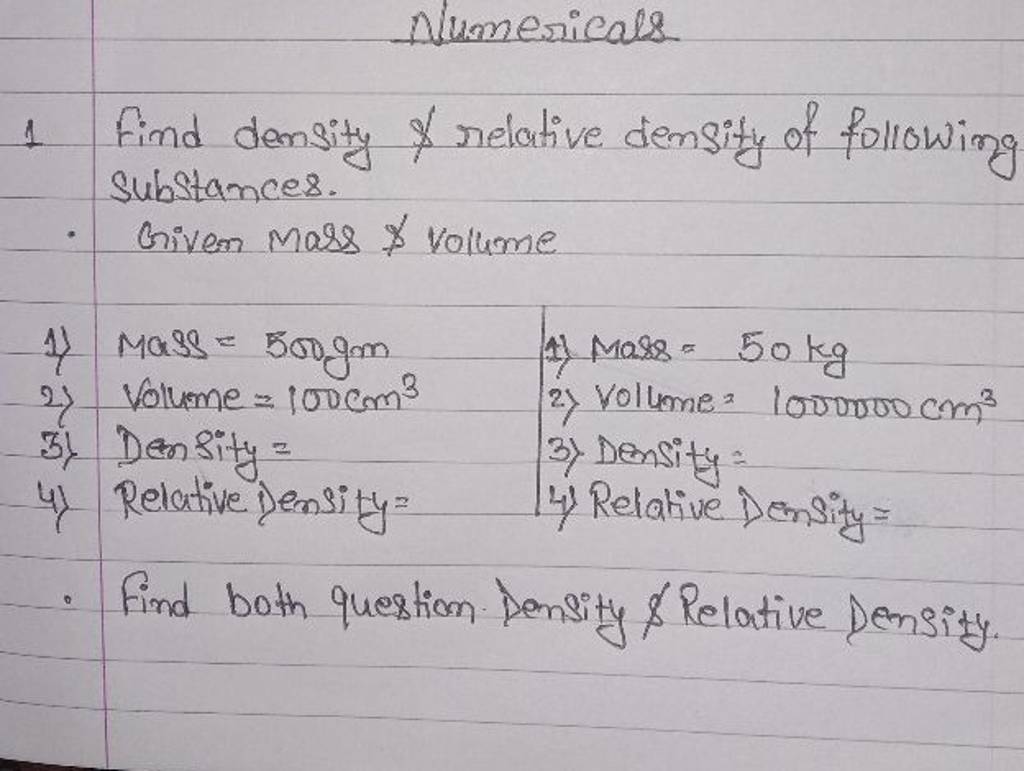 Numericals
1 Find density & relative density of following
substances.
· Given Mass & Volume
1) Mass = 500gm
2) Volume = 100cm³
3) Density =
4) Relative Density =
1) Mass = 50 kg
2) Volume = 1000000 cm³
3) Density =
4) Relative Density =
· Find both question. Density & Relative Density.